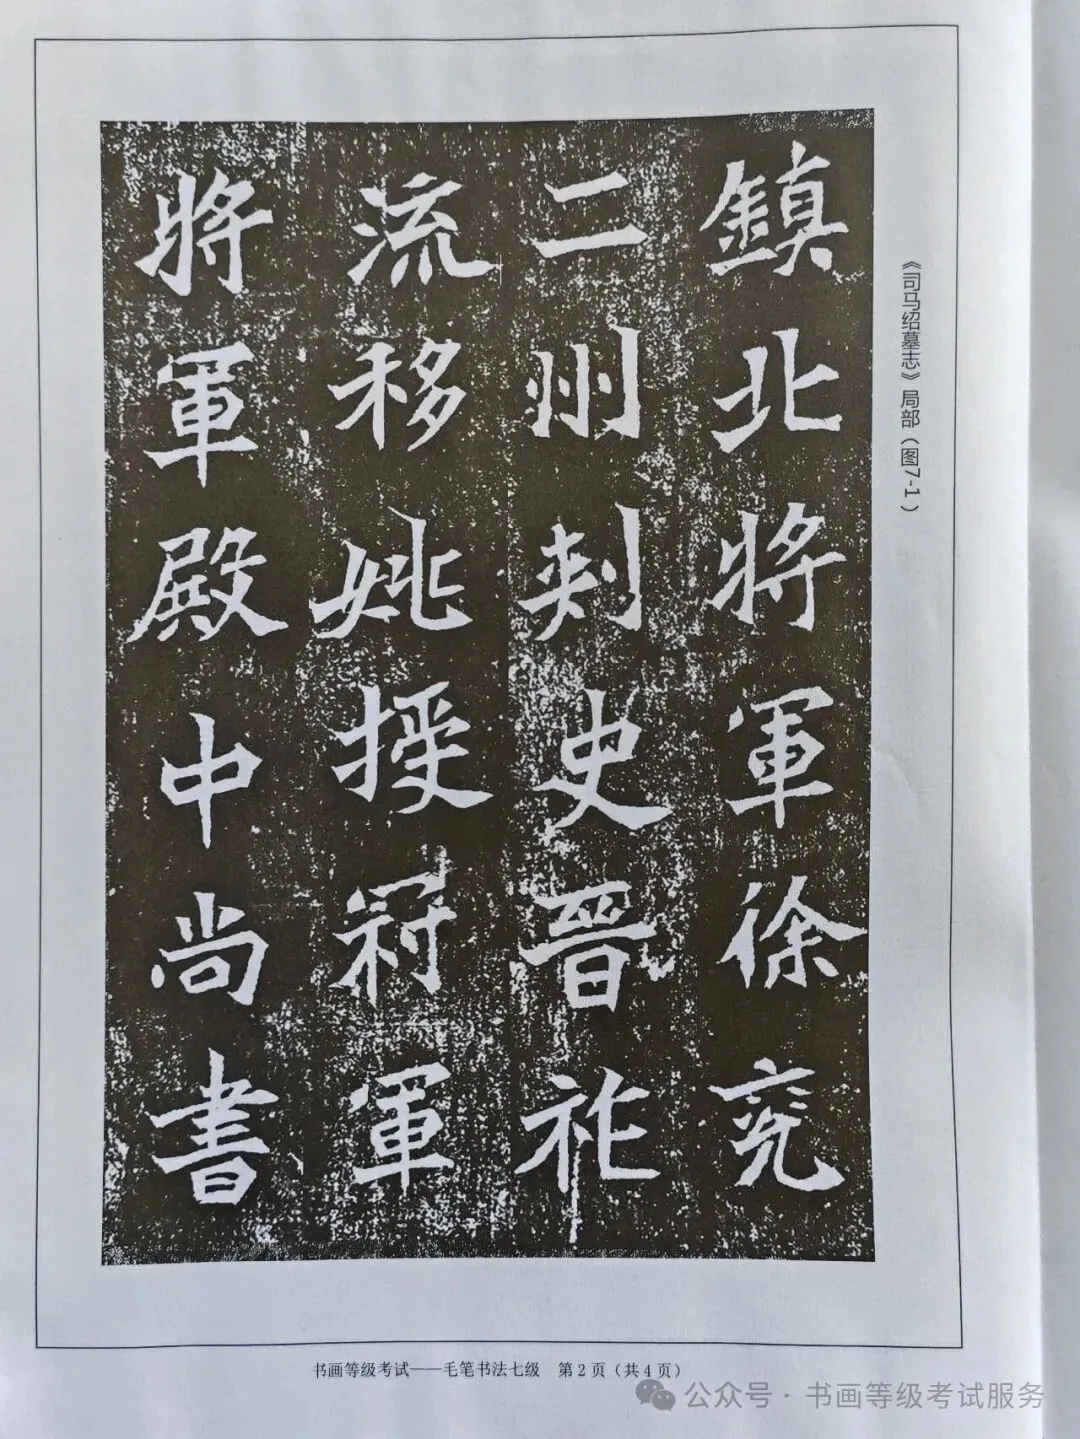 鎮北將軍徐兖
二州刾史晉祚
流移姚授冠軍
將軍殿中尚書
《司马绍墓志》局部（图7-1）
书画等级考试——毛笔书法七级　第2页（共4页）
公众号·书画等级考试服务